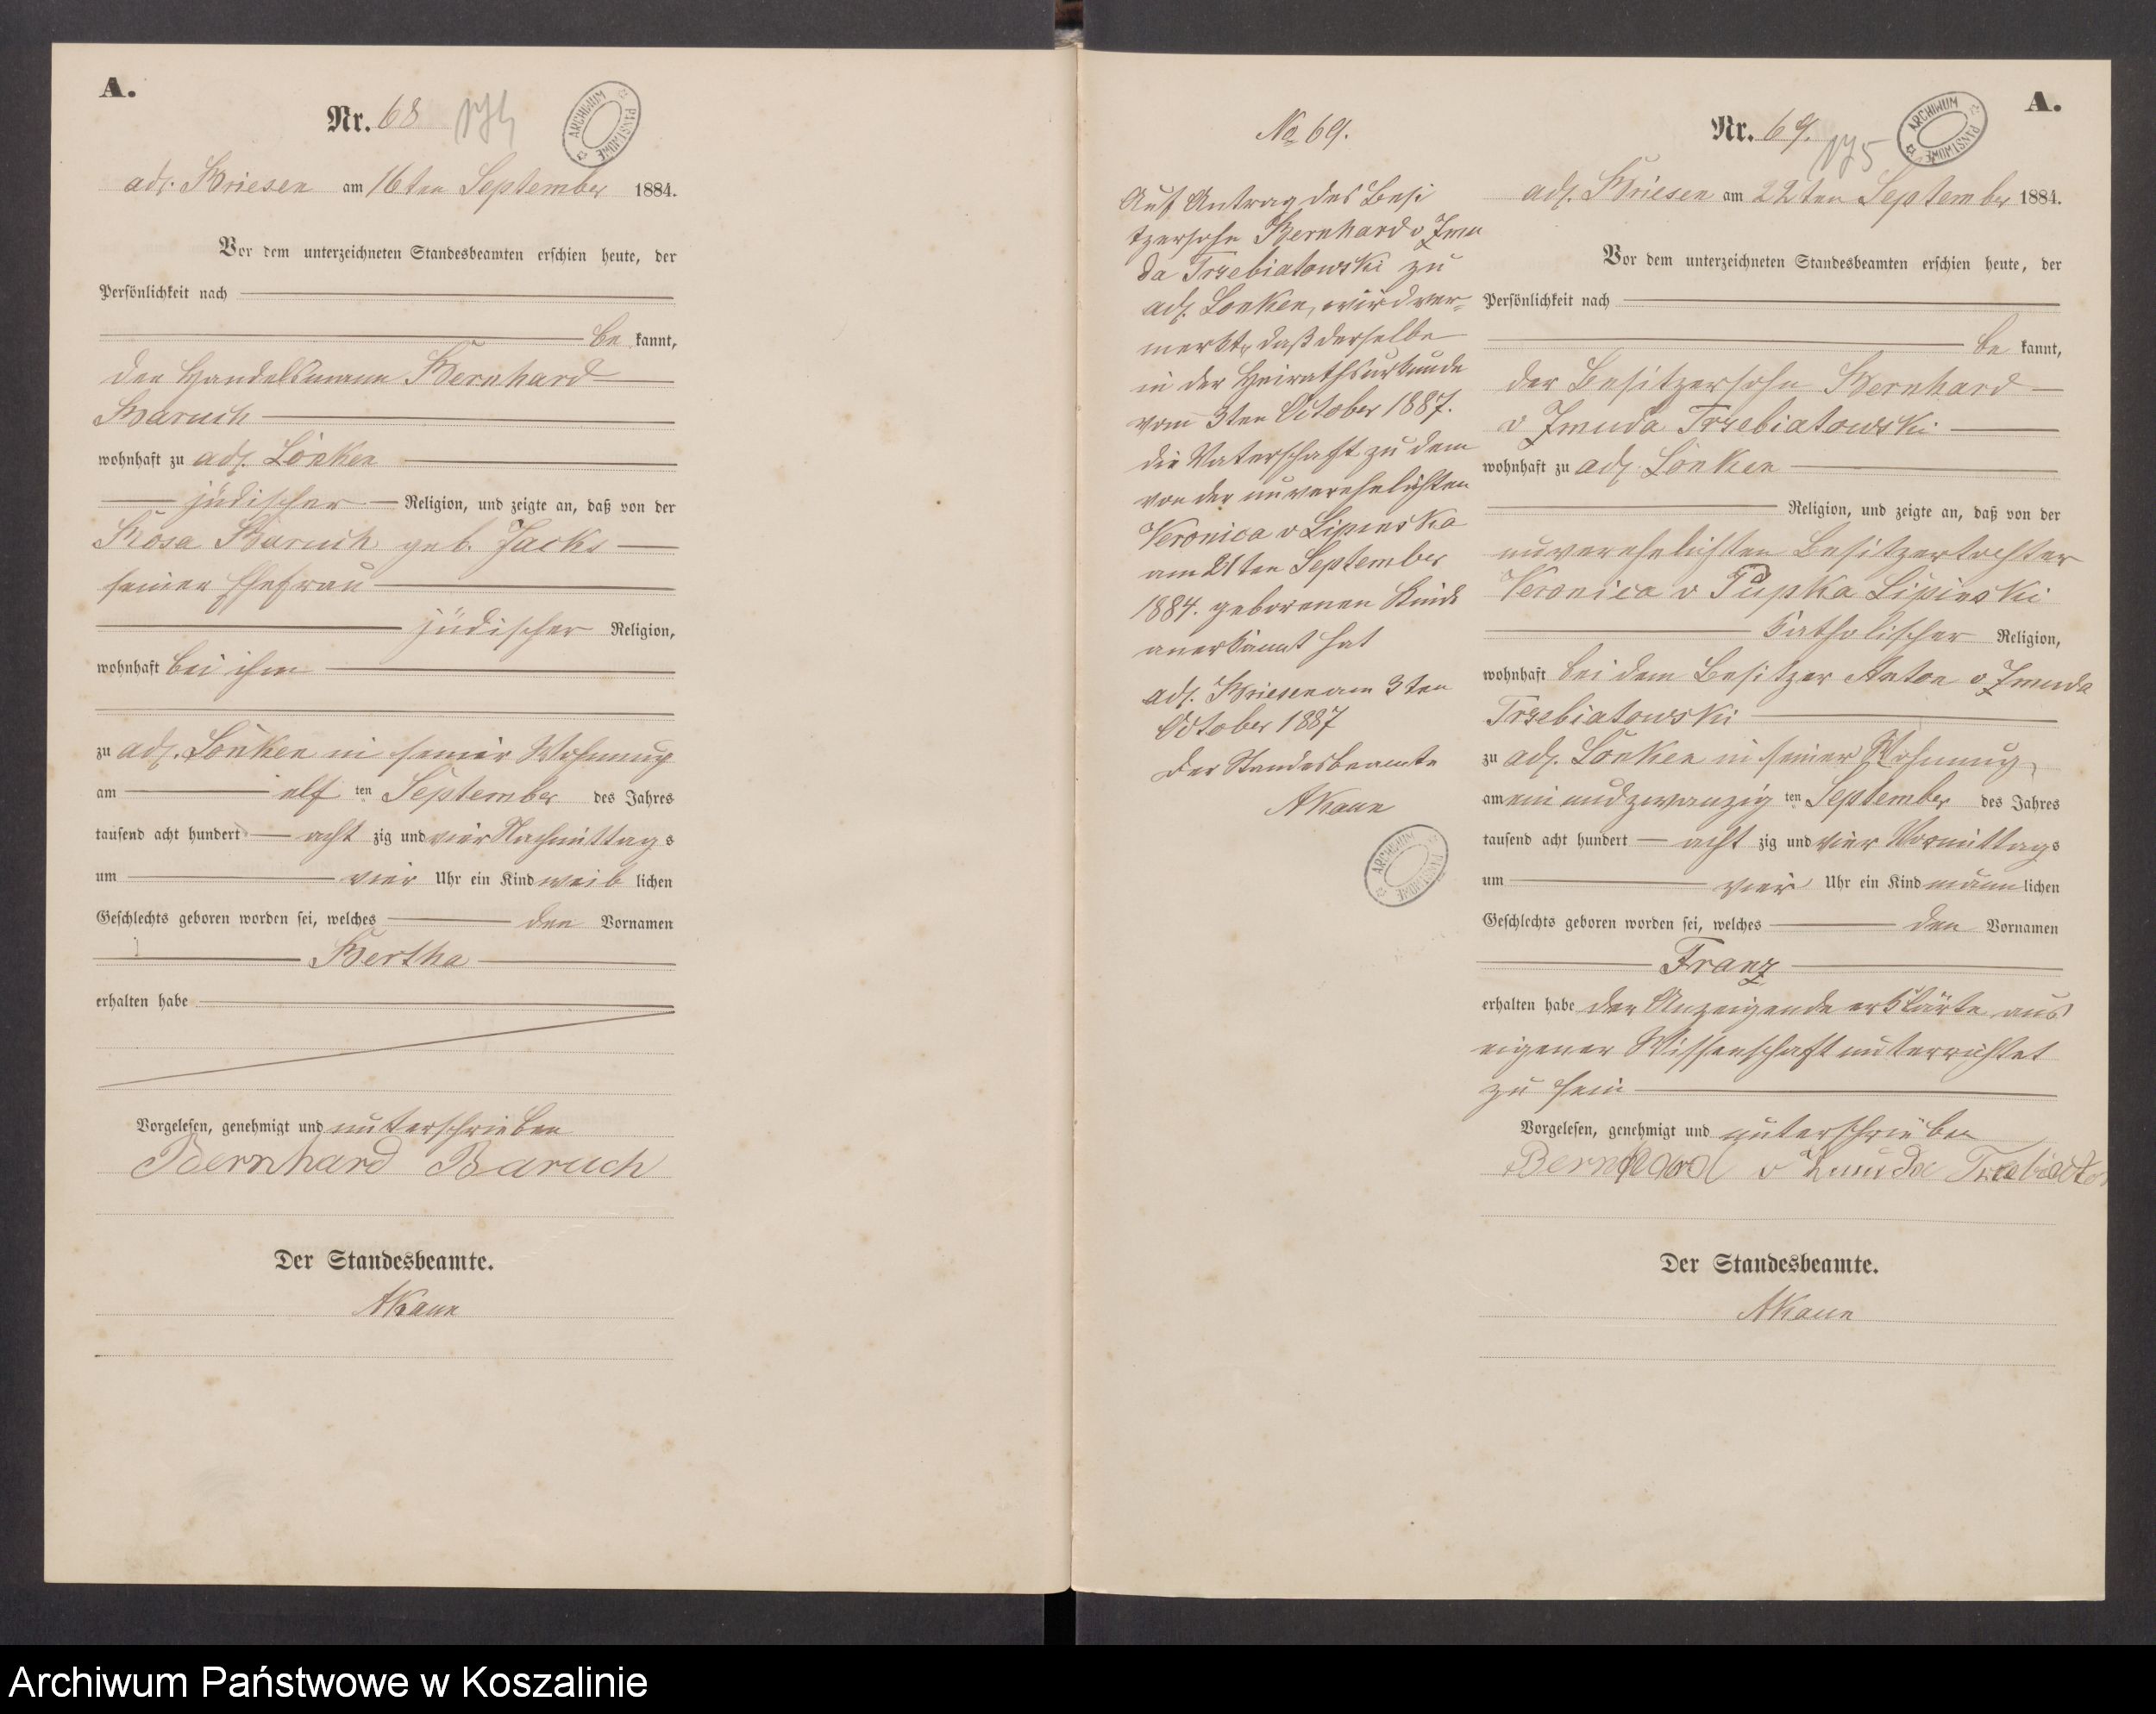 A.
Nr. 68
174
ARCHIWUM PAŃSTWOWE
adl. Briesen am 16ten September 1884.
Vor dem unterzeichneten Standesbeamten erschien heute, der
Persönlichkeit nach
be kannt,
der Handelsmann Bernhard
Baruch
wohnhaft zu adl. Lonken
jüdischer Religion, und zeigte an, daß von der
Rosa Baruch geb. Jacks
seiner Ehefrau
jüdischer Religion,
wohnhaft bei ihm
zu adl. Lonken in seiner Wohnung
am elf ten September des Jahres
tausend acht hundert acht zig und vier Nachmittags
um vier Uhr ein Kind weib lichen
Geschlechts geboren worden sei, welches den Vornamen
Bertha
erhalten habe
Vorgelesen, genehmigt und unterschrieben
Bernhard Baruch
Der Standesbeamte.
No 69.
Auf Antrag des Besi
tzersohn Bernhard v Zmu
da Trzebiatowski zu
adl. Lonken, wird ver-
merkt, daß derselbe
in der Heirathsurkunde
vom 3ten October 1887.
die Vaterschaft zu dem
von der unverehelichten
Veronica v Lipinska
am 21ten September
1884. geborenen Kinde
anerkannt hat
adl. Briesen am 3ten
October 1887
Der Standesbeamte
ARCHIWUM PAŃSTWOWE
A.
Nr. 69.
175
ARCHIWUM PAŃSTWOWE
adl. Briesen am 22ten September 1884.
Vor dem unterzeichneten Standesbeamten erschien heute, der
Persönlichkeit nach
be kannt,
der Besitzersohn Bernhard
v Zmuda Trzebiatowski
wohnhaft zu adl. Lonken
Religion, und zeigte an, daß von der
unverehelichten Besitzertochter
Veronica v Pupka Lipinski
katholischer Religion,
wohnhaft bei dem Besitzer Anton v Zmuda
Trzebiatowski
zu adl. Lonken in seiner Wohnung,
am ein und zwanzig ten September des Jahres
tausend acht hundert acht zig und vier Vormittags
um vier Uhr ein Kind männ lichen
Geschlechts geboren worden sei, welches den Vornamen
Franz
erhalten habe der Anzeigende erklärte aus
eigener Wissenschaft unterrichtet
zu sein
Vorgelesen, genehmigt und unterschrieben
Bernhard v
Der Standesbeamte.
Archiwum Państwowe w Koszalinie